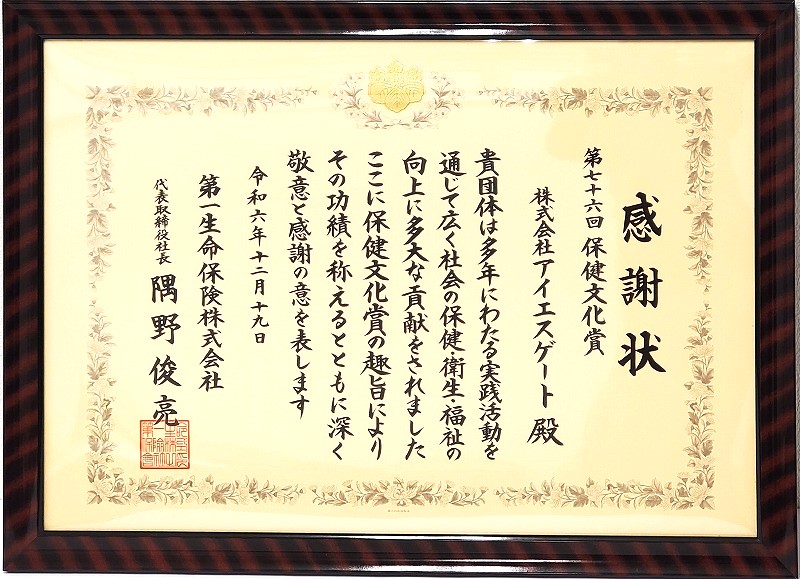 感謝状
第七十六回 保健文化賞
株式会社アイエスゲート 殿
貴団体は多年にわたる実践活動を
通じて広く社会の保健・衛生・福祉の
向上に多大な貢献をされました
ここに保健文化賞の趣旨により
その功績を称えるとともに深く
敬意と感謝の意を表します
令和六年十二月十九日
第一生命保険株式会社
代表取締役社長 隅野俊亮